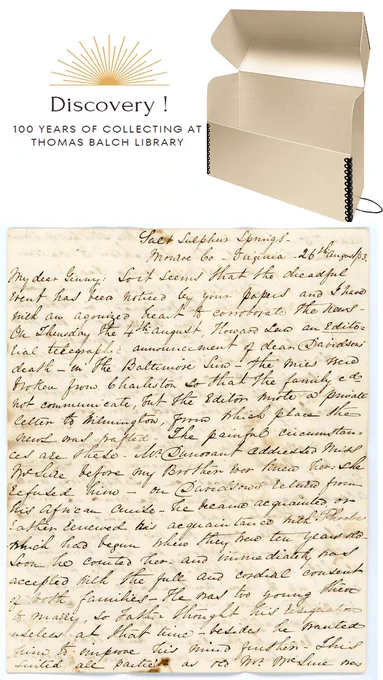 Discovery !
100 YEARS OF COLLECTING AT
THOMAS BALCH LIBRARY
Salt Sulphur Springs -
Monroe Co - Virginia - 26th August /53
My dear Ginny: So it seems that the dreadful
event has been noticed by your papers and I have
with an agonized heart to corroborate the news -
On Thursday the 4th August Howard saw an Edito=
rial telegraphic announcement of dear Davidson's
death - in the Baltimore Sun - the wires were
broken from Charleston so that the family cd
not communicate, but the Editor wrote a private
letter to Wilmington, from which place the
news was wafted. The painful circumstan=
ces are these - Mr Dunovant addressed Miss
McLure before my Brother ever knew her. She
refused him - on Davidson's return from
his African Cruise - he became acquainted or
rather renewed his acquaintance with Phoebe
which had begun when they were ten years old -
Soon he courted her - and immediately was
accepted with the full and cordial consent
of both families - He was too young then
to marry, so Father thought his resignation
useless at that time - besides he wanted
him to improve his mind further - This
suited all parties as old Mr McLure was